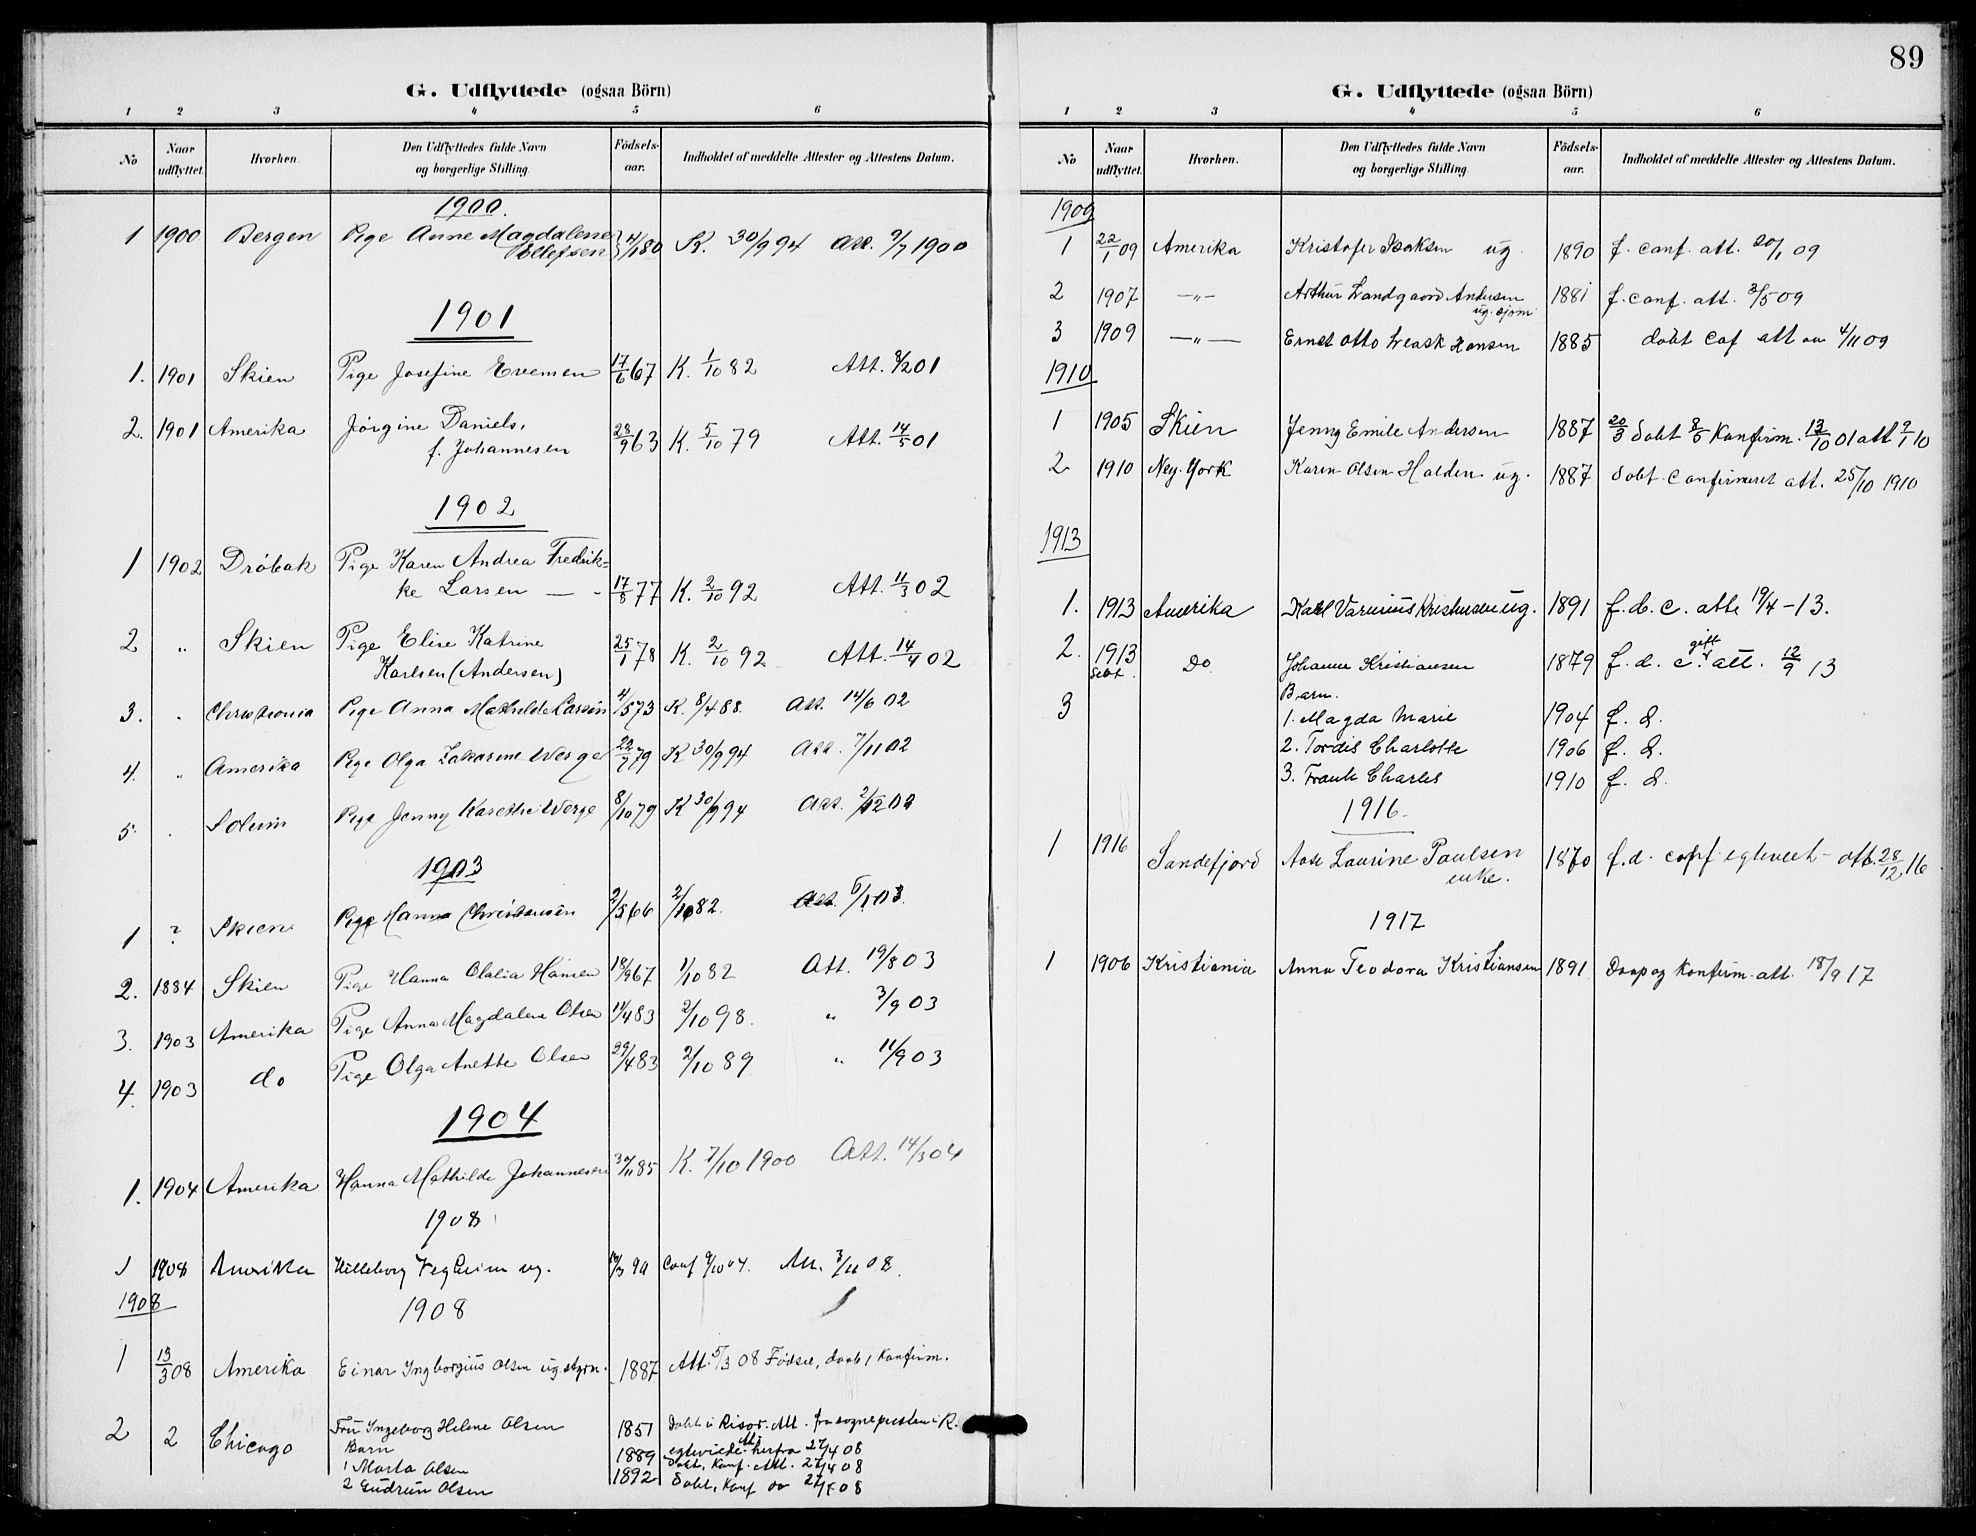 G. Udflyttede (ogsaa Börn)
1 2 3 4 5 6
No Naar udflyttet. Hvorhen. Den Udflyttedes fulde Navn og borgerlige Stilling. Födsels-aar. Indholdet af meddelte Attester og Attestens Datum.
1900.
1 1900 Bergen Pige Anne Magdalene 4/1 80 K. 30/9 94 Att. 9/7 1900
Ellefsen
1901
1. 1901 Skien Pige Josefine Evemen 17/6 67 K. 1/10 82 Att. 8/2 01
2. 1901 Amerika Jörgine Daniels, 28/9 63 K. 5/10 79 Att. 14/5 01
f. Johannesen
1902
1 1902 Dröbak Pige Karen Andrea Fredrik-
ke Larsen — - 17/5 77 K. 2/10 92 Att. 11/3 02
2 " Skien Pige Elise Katrine 25/1 78 K. 2/10 92 Att. 14/4 02
Karlsen (Andersen)
3. " Christiania Pige Anna Mathilde Larsen 4/5 73 K. 8/4 88. Att. 14/6 02
4. " Amerika Pige Olga Zakarine Werge 22/7 79 K 30/9 94 Att. 7/11 02
5. . Solum Pige Jenny Karethe Werge 8/10 79 K 30/9 94 Att. 2/12 02
1903
1 ? Skien Pige Hanna Christensen 2/5 66 2/10 82. Att. 6/1 03.
2. 1884 Skien Pige Hanna Olalia Hansen 18/9 67 1/10 82 Att. 19/8 03
3. 1903 Amerika Pige Anna Magdalene Olsen 11/4 83 2/10 98. " 3/9 03
4. 1903 do Pige Olga Anette Olsen 29/4 83 2/10 89 " 11/9 03
1904
1. 1904 Amerika Hanna Mathilde Johannesen 30/11 85 K. 7/10 1900 Att. 14/3 04
1908
1 1908 Amerika Hilleborg ug. Conf 9/10 04. Att. 3/11 08.
1908
1908
1 13/3 08 Amerika Einar Ingborgius Olsen ug styrm. 1887 Att. 5/3 08 Födsel, daab, Konfirm.
2 2 Chicago Fru Ingeborg Helene Olsen 1851 Döbt i Risör. Att. fra sognepresten i R.
Barn egteviede Att. herfra 27/4 08
1 Marta Olsen 1889 Döbt, Konf. Att. 27/4 08
2 Gudrun Olsen 1892 Döbt, Konf do 27/4 08
89
G. Udflyttede (ogsaa Börn)
1 2 3 4 5 6
No Naar udflyttet. Hvorhen. Den Udflyttedes fulde Navn og borgerlige Stilling. Födsels-aar. Indholdet af meddelte Attester og Attestens Datum.
1909
1 22/1 09 Amerika Kristofer Isaksen ug. 1890 f. conf. att. 20/1 09
2 1907 —"— Arthur Landgaard Andersen 1881 f. conf. att. 3/5 09
ug. sjöm.
3 1909 —"— Ernst Otto Leask Hansen 1885 döbt Cof att 4/11 09
1910
1 1905 Skien Jenny Emilie Andersen 1887 20/3 Döbt 8/5 Konfirm. 13/10 01 att 9/1 10
2 1910 Ney York Karen Olsen Halden ug. 1887 döbt Confirmeret att. 25/10 1910
1913
1. 1913 Amerika Karl Varinius Kristensen ug. 1891 f. d. c. atte 19/4 – 13.
2. 1913 Sebt. Do Johanne Kristiansen 1879 f. d. c. gift att. 12/9 13
Barn.
3 1. Magda Marie 1904 f. d.
2. Tordis Charlotte 1906 f. d.
3. Frank Charles 1910 f. d.
1916.
1 1916 Sandefjord Aase Laurine Paulsen 1870 f. d. conf. egteviet – att. 28/12 16
enke.
1917
1 1906 Kristiania Anna Teodora Kristiansen 1891 Daap og Konfirm. att. 18/9 17